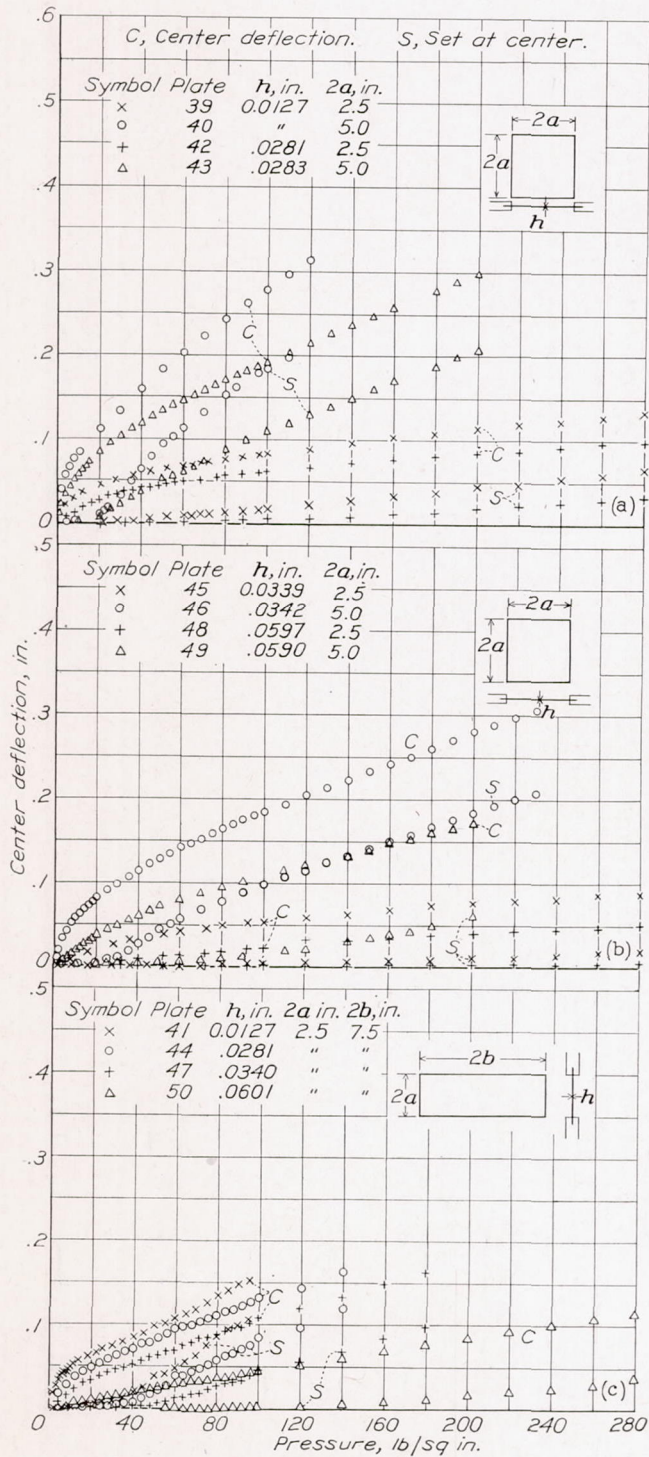 C, Center deflection. S, Set at center.
Symbol Plate h, in. 2a, in.
× 39 0.0127 2.5
○ 40 " 5.0
+ 42 .0281 2.5
△ 43 .0283 5.0
2a
2a
h
.6
.5
.4
.3
.2
.1
0
C
S
C
S
(a)
Symbol Plate h, in. 2a, in.
× 45 0.0339 2.5
○ 46 .0342 5.0
+ 48 .0597 2.5
△ 49 .0590 5.0
2a
2a
h
.5
.4
.3
.2
.1
0
C
S
C
C
S
(b)
Center deflection, in.
Symbol Plate h, in. 2a in. 2b, in.
× 41 0.0127 2.5 7.5
○ 44 .0281 " "
+ 47 .0340 " "
△ 50 .0601 " "
2b
2a
h
.5
.4
.3
.2
.1
0
C
S
C
S
(c)
0 40 80 120 160 200 240 280
Pressure, lb/sq in.